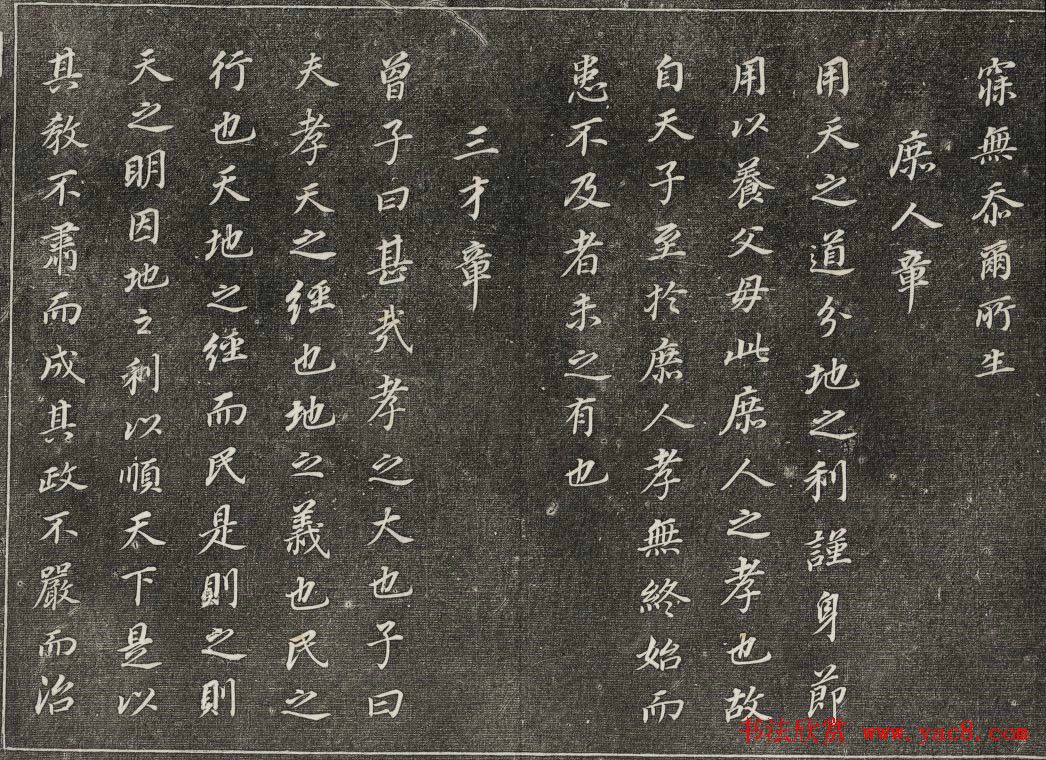 寐無忝爾所生
庶人章
用天之道分地之利謹身節
用以養父母此庶人之孝也故
自天子至於庶人孝無終始而
患不及者未之有也
三才章
曾子曰甚哉孝之大也子曰
夫孝天之經也地之義也民之
行也天地之經而民是則之則
天之明因地之利以順天下是以
其教不肅而成其政不嚴而治
书法欣赏 www.yac8.com